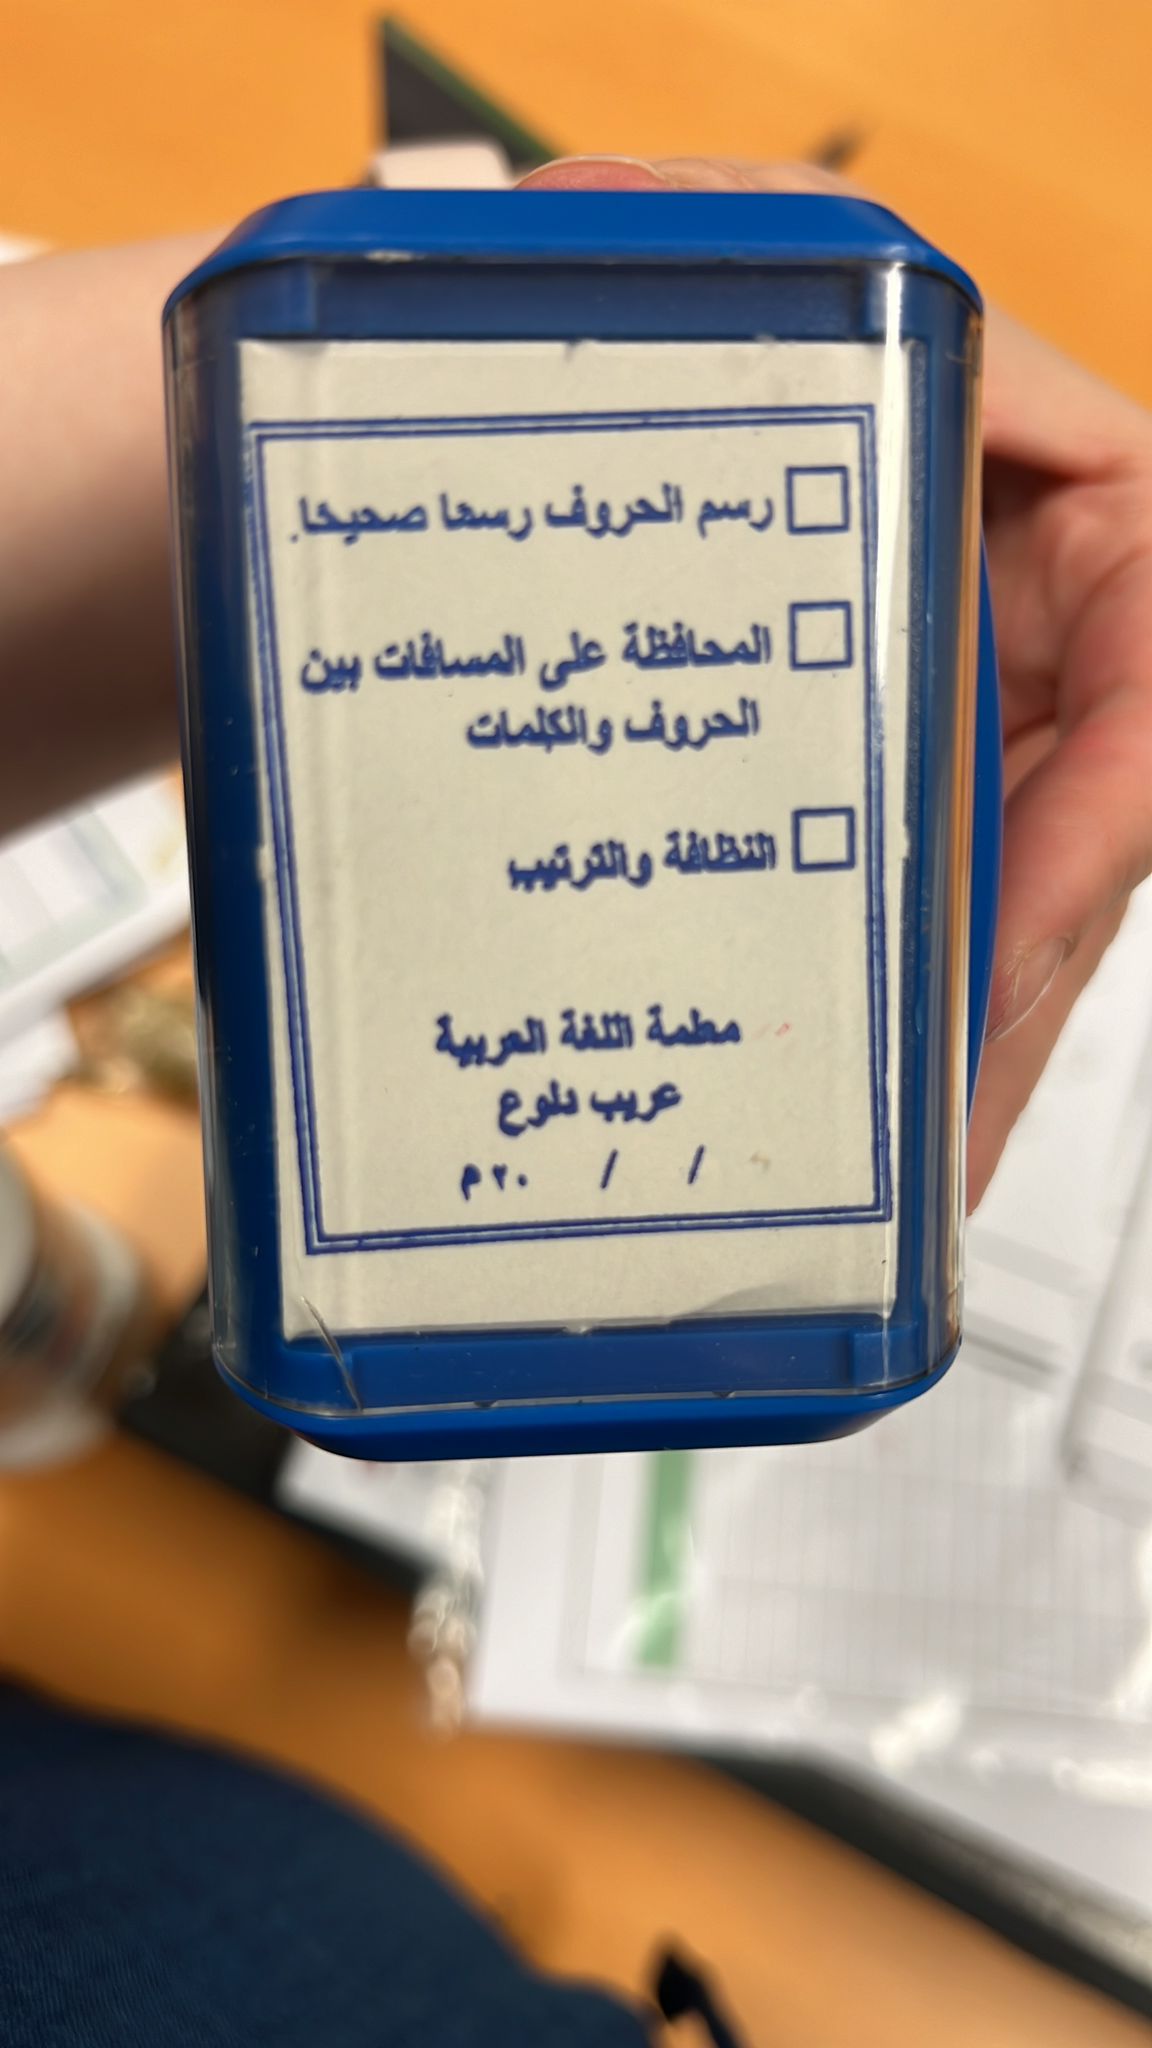 رسم الحروف رسما صحيحا.
المحافظة على المسافات بين
الحروف والكلمات
النظافة والترتيب
معلمة اللغة العربية
عريب دلوع
/ / ٢٠ م